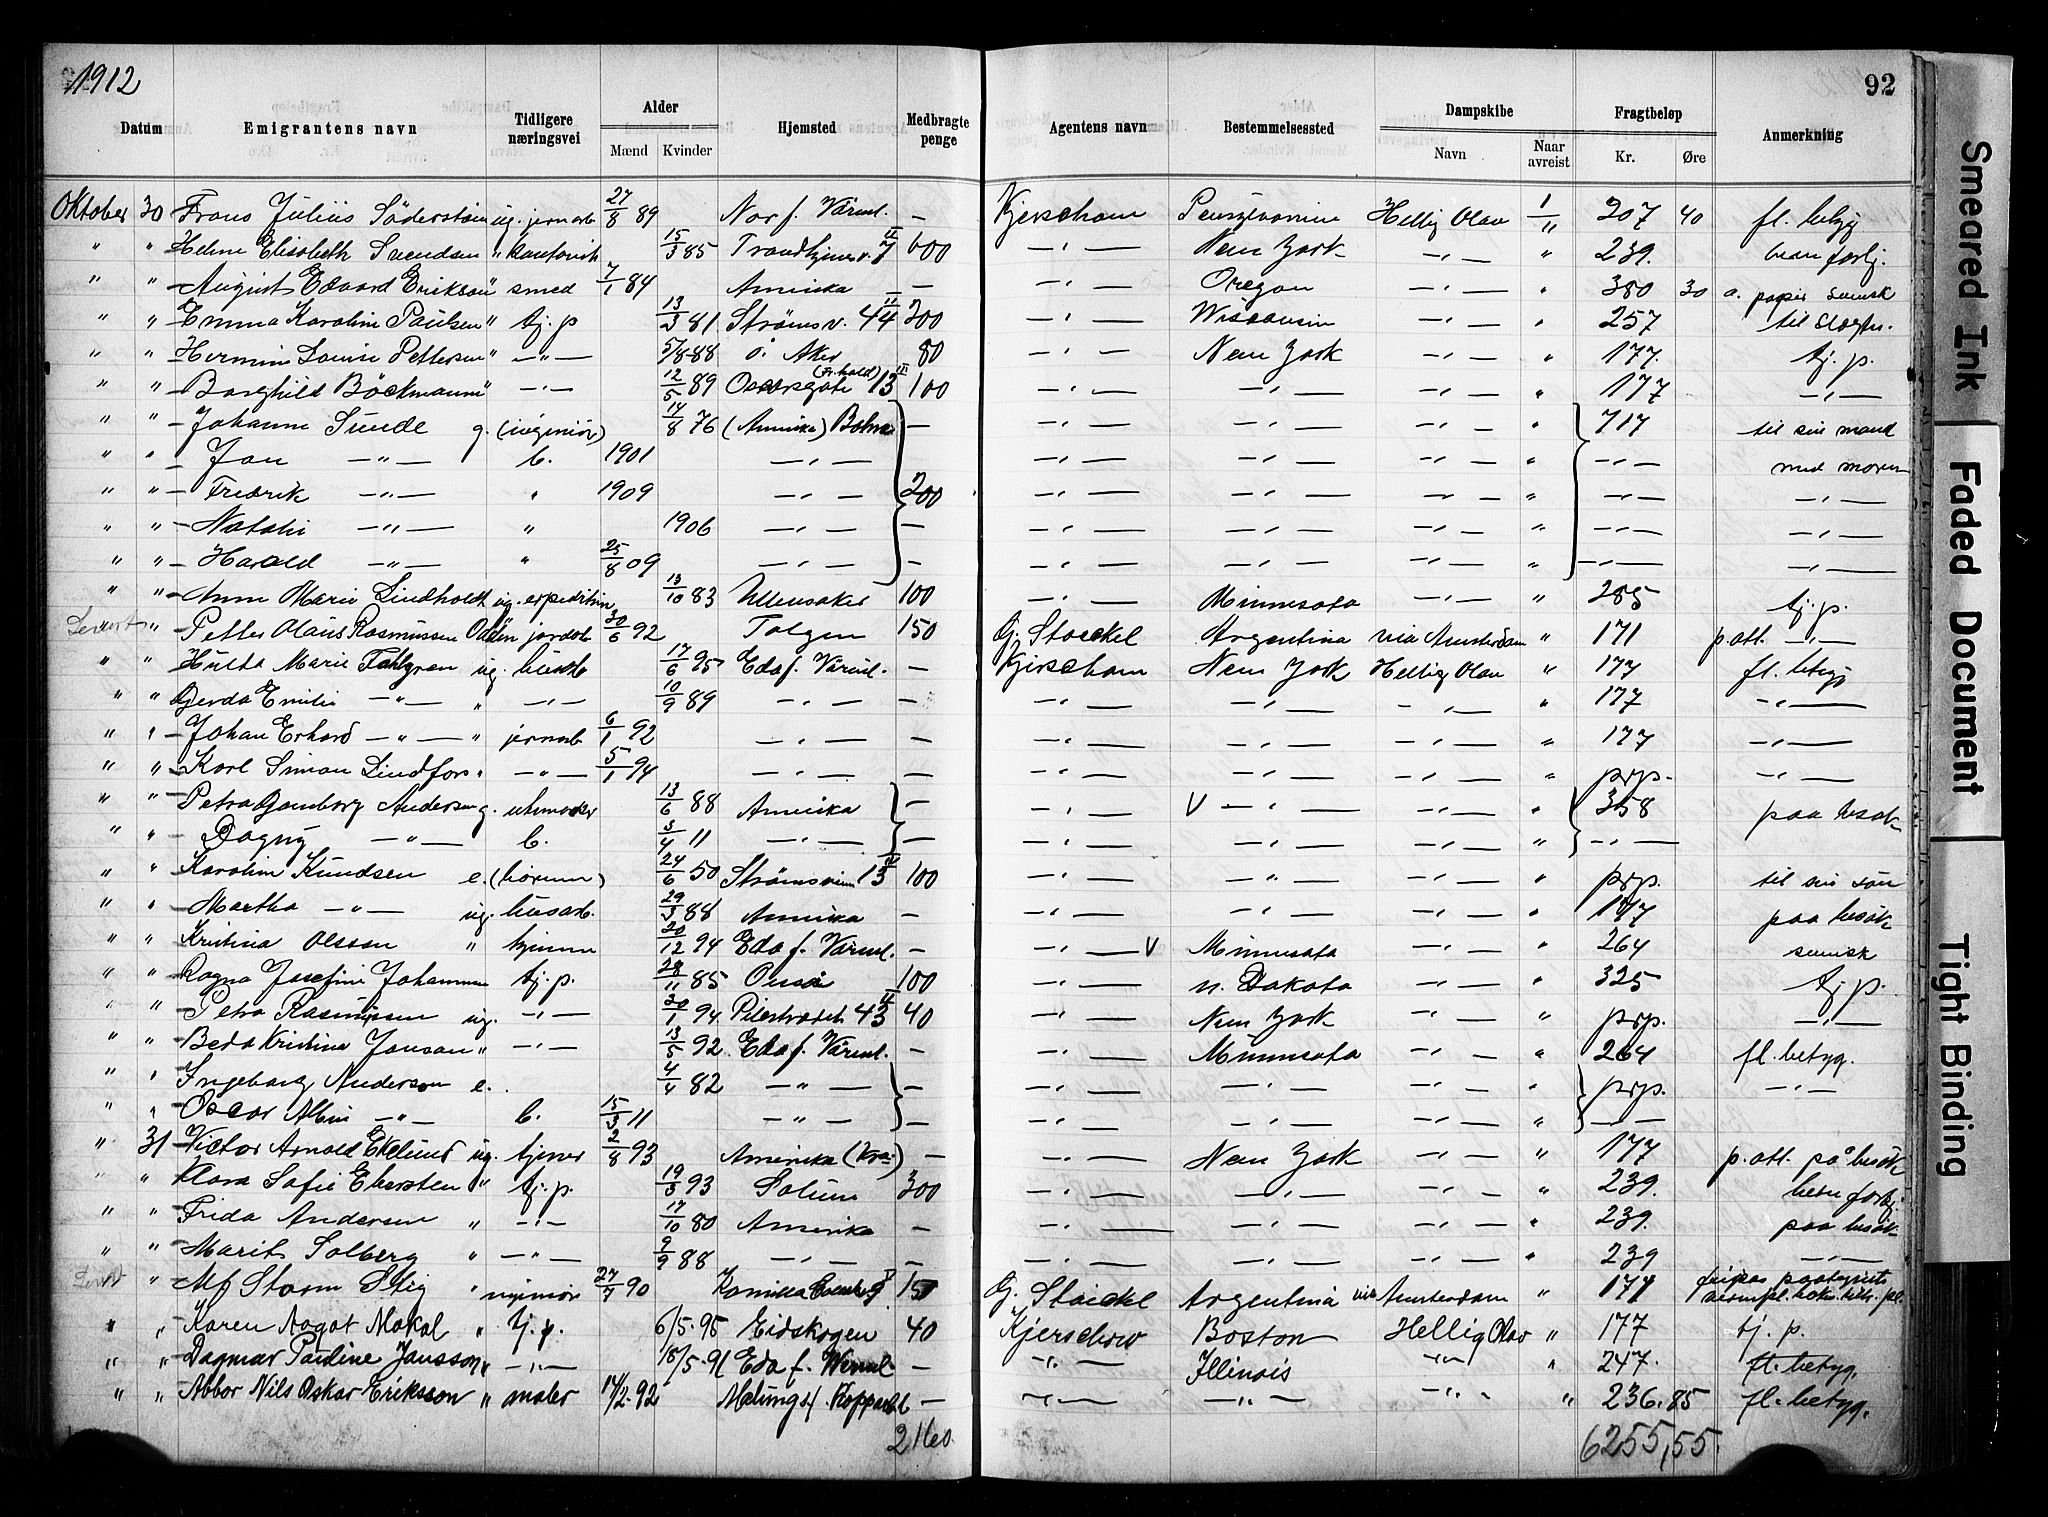 1912
92
Datum Emigrantens navn Tidligere næringsvei Alder Mænd Kvinder Hjemsted Medbragte penge Agentens navn Bestemmelsessted Dampskibe Navn Naar avreist Fragtbeløp Kr. Øre Anmerkning
Oktober 30 Frans Julius Söderström ug. jernarb 27/8 89 Nor f. Värml. — 1/11 207 40 fl. betyg
" " Helene Elisabeth Svendsen " kontorik 15/3 85 Trondhjemsv. 7 II 600 —"— New York —"— " 239.
" " August Edvard Erikson " smed 7/1 84 Amerika — —"— Oregon —"— " 380 30 a. papir svensk
" " Emma Karoline Paulsen " tj. p 13/3 81 Strømsv. 44 II 200 —"— Wisconsin —"— " 257
" " Hermine Louise Pettersen " —"— 5/8 88 Ö. Aker 80 —"— New York —"— " 177. tj. p.
" " Borghild Böckmann " —"— 12/5 89 Oscarsgate 13 III 100 —"— —"— —"— " 177 —"—
" " Johanne Sunde g. (ingeniör) 14/8 76 (Amerika) — —"— —"— —"— " 717 til sin mand
" " Jon —"— b. 1901 —"— —"— —"— —"— " —"— med moren
" " Fredrik —"— " 1909 —"— 200 —"— —"— —"— " —"— —"—
" " Natalie —"— " 1906 —"— — —"— —"— —"— " —"— —"—
" " Harald —"— " 25/8 09 —"— — —"— —"— —"— " —"— —"—
" " Anne Marie Lindholdt ug. 13/10 83 Ullensaker 100 —"— Minnesota —"— " 285 tj. p.
" " Petter Olaus Rasmussen jordarb 30/6 92 Tolgen 150 G. Stoeckel Argentina via Amsterdam " 171 p. att. —"—
" " Hulda Marie Fahlgren ug. 17/6 95 Eda f. Värml. — Kjerschow New York Hellig Olav " 177 fl. betyg
" " Gerda Emilie —"— " —"— 10/9 89 —"— — —"— —"— —"— " 177 —"—
" " Johan Erhard —"— " jernarb 6/1 92 —"— — —"— —"— —"— " 177 —"—
" " Karl Simon Lindfors " —"— 5/1 94 —"— — —"— —"— —"— " prp. —"—
" " Petra Gamborg Andersen g. urmaker 13/6 88 Amerika — —"— V —"— —"— " 358 paa besøk
" " Dagny —"— b. 3/4 11 —"— — —"— —"— —"— " —"—
" " Karoline Knudsen e. 24/6 50 Strømsveien 13 IV 100 —"— —"— —"— " prp. til sin sön
" " Martha —"— ug. husarb. 29/3 88 Amerika — —"— —"— —"— " 177 paa besøk
" " Kristina Olsson " tjenen 20/12 94 Eda f. Värml. — —"— V Minnesota —"— " 264 svensk
" " Ragna Josefine Johannesen tj. p. 28/11 85 100 —"— n. Dakota —"— " 325 tj. p.
" " Petra Rasmussen ug. —"— 20/1 94 Pilestrædet 43 II 40 —"— New York —"— " prp. —"—
" " Beda Kristina Jonson " —"— 13/5 92 Eda f. Värml. — —"— Minnesota —"— " 264 fl. betyg.
" " Ingeborg Anderson e. 4/4 82 —"— — —"— —"— —"— " prp. —"—
" " Oscar Albin —"— b. 15/3 11 —"— — —"— —"— —"— " —"—
" 31 Victor Arnold Ekelund ug. tjener 2/8 93 Amerika (Kra.) — —"— New York —"— " 177 p. att. på besök
" " Klara Sofie Ebersten " tj. p. 19/3 93 Solum 300 —"— —"— —"— " 239.
" " Frida Andersen " —"— 17/10 80 Amerika — —"— —"— —"— " 239. paa besök
" " Marit Solberg " —"— 9/9 88 —"— — —"— —"— —"— " 239 —"—
" " Alf Storm Stig " ingeniör 27/7 90 150 G. Stoeckel Argentina via Amsterdam " 171
" " Karen Aagot Mokal " tj. p. 6/5.95 Eidskogen 40 Kjerschow Boston Hellig Olav " 177 tj. p.
" " Dagmar Pauline Jansson " —"— 18/5.91 Eda f. Werml — —"— Illinois —"— " 247. fl. betyg.
" " Abbor Nils Oskar Eriksson " maler 14/2.92 Malungs f. Kopparbl — —"— —"— —"— " 236.85 fl. betyg.
2160. 6255,55.
Smeared Ink
Faded Document
Tight Binding